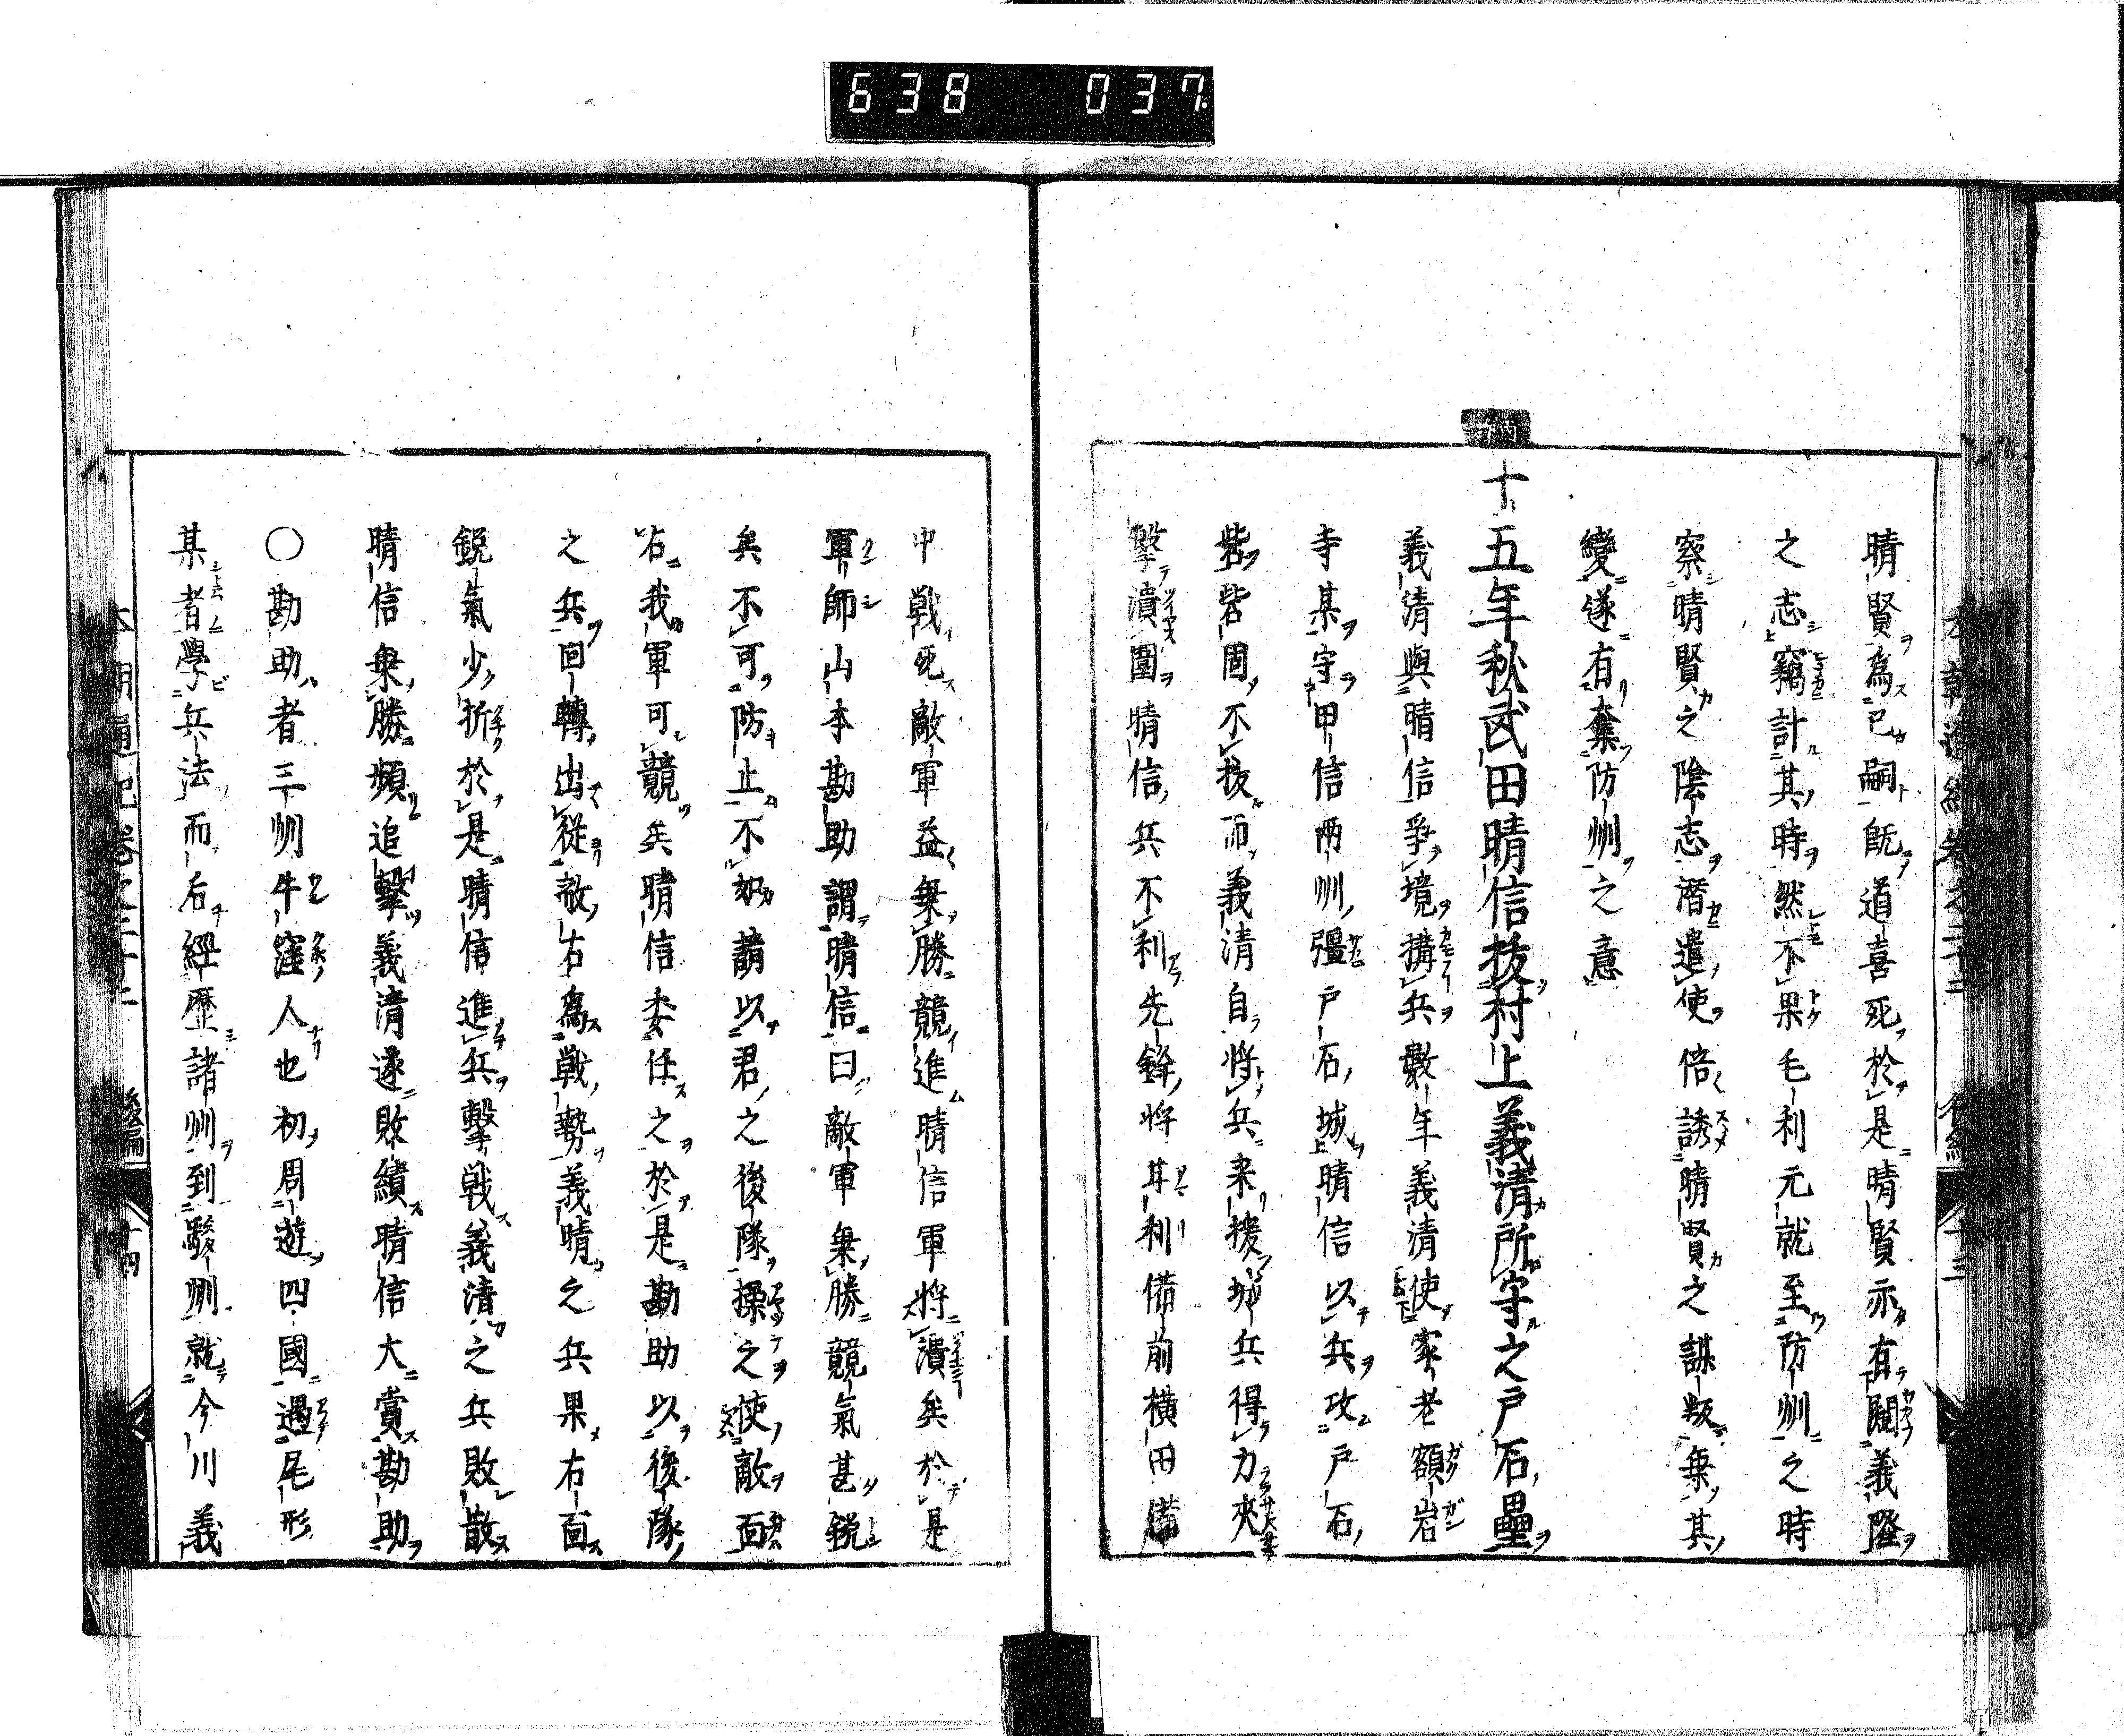 638 037
晴賢爲己嗣既道喜死於是晴賢示有鬩義隆
之志竊計其時然不果毛利元就至防州之時
察晴賢之陰志潜遣使倍誘晴賢之謀叛乗其
變遂有奪防州之意
十五年秋武田晴信抜村上義清所守之戸石壘
義清與晴信爭境搆兵數年義清使家老額岩
寺某守甲信兩州彊戸石城晴信以兵攻戸石
砦砦固不抜而義清自将兵来援城兵得力夾
撃潰圍晴信兵不利先鋒将甘利備前横田備
中戦死敵軍益乗勝競進晴信軍将潰矣於是
軍師山本勘助謂晴信曰敵軍乗勝競氣甚鋭
矣不可防止不如請以君之後隊操之使敵面
右我軍可競矣晴信委任之於是勘助以後隊
之兵回轉出從敵右爲戦勢義晴之兵果右面
鋭氣少折於是晴信進兵撃戦義清之兵敗散
晴信乗勝頻追撃義清遂敗績晴信大賞勘助
〇勘助者三州牛窪人也初周遊四國遇尾形
某者學兵法而后經歴諸州到駿州就今川義
本朝通紀巻之二十二 後編 十四